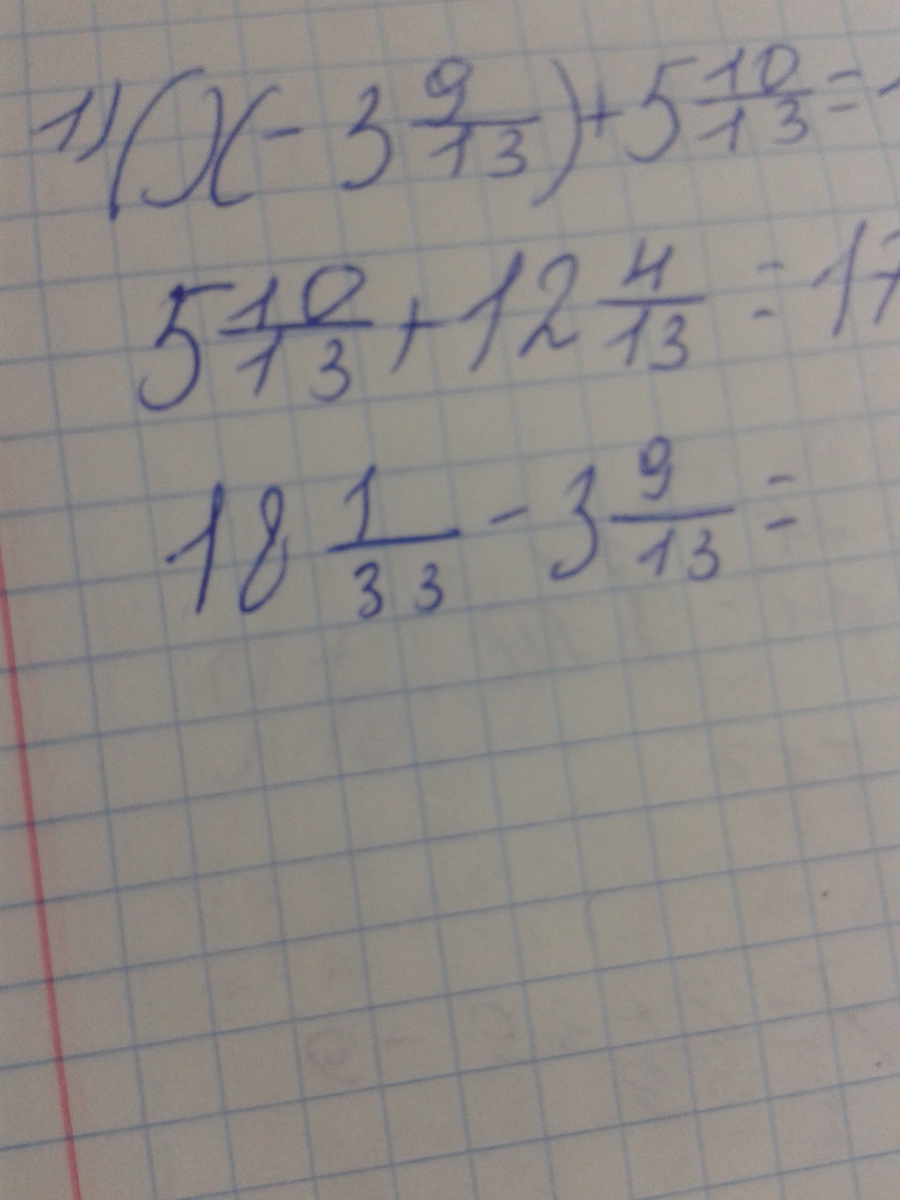 1) (x - 3 9/13) + 5 10/13 = 1
5 10/13 + 12 4/13 = 17
18 1/33 - 3 9/13 =